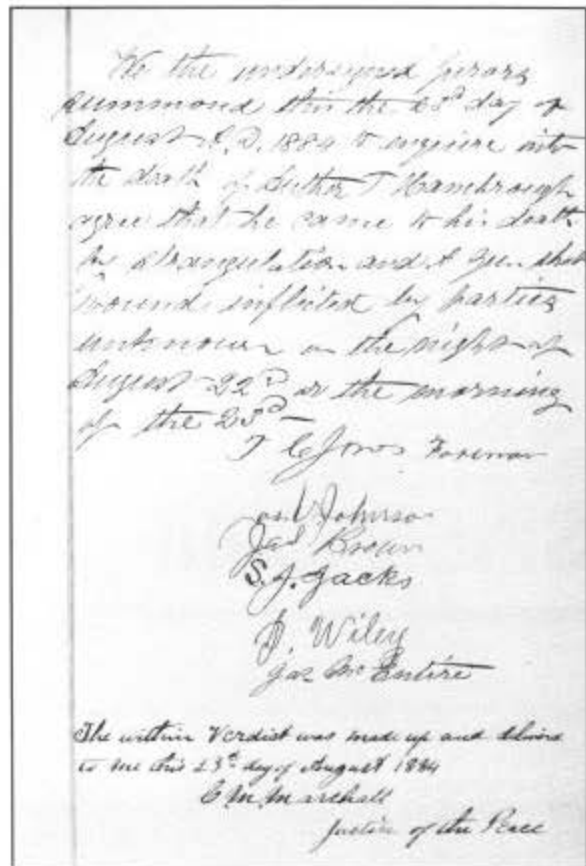 We the undersigned jurors
summond this the 23rd day of
August A.D. 1884 to enquire into
the death of Author T Hambrough
agree that he came to his death
by strangulation and A gun shot
wound inflicted by parties
unknown on the night of
August 22nd or the morning
of the 23rd —
T C Jones Foreman
Johnson
Jas Brown
S. J. Jacks
Wiley
Jas McEntire
The within Verdict was made up and
to me this 23rd day of August 1884
C. M. Marshall
Justice of the Peace